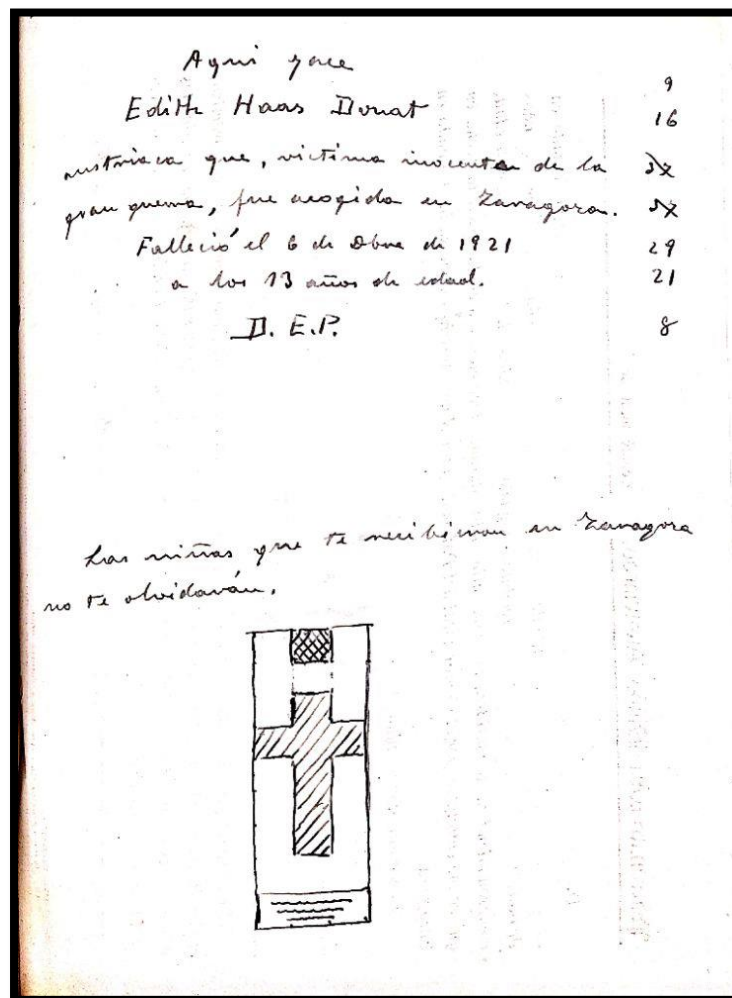 Aqui yace
9
Edith Haas Donat
16
austriaca que, victima inocente de la
gran guerra, fue acogida en Zaragoza.
Falleció el 6 de Dbre de 1921
29
a los 13 años de edad.
21
D. E. P.
8
Las niñas que te recibieron en Zaragoza
no te olvidarán.